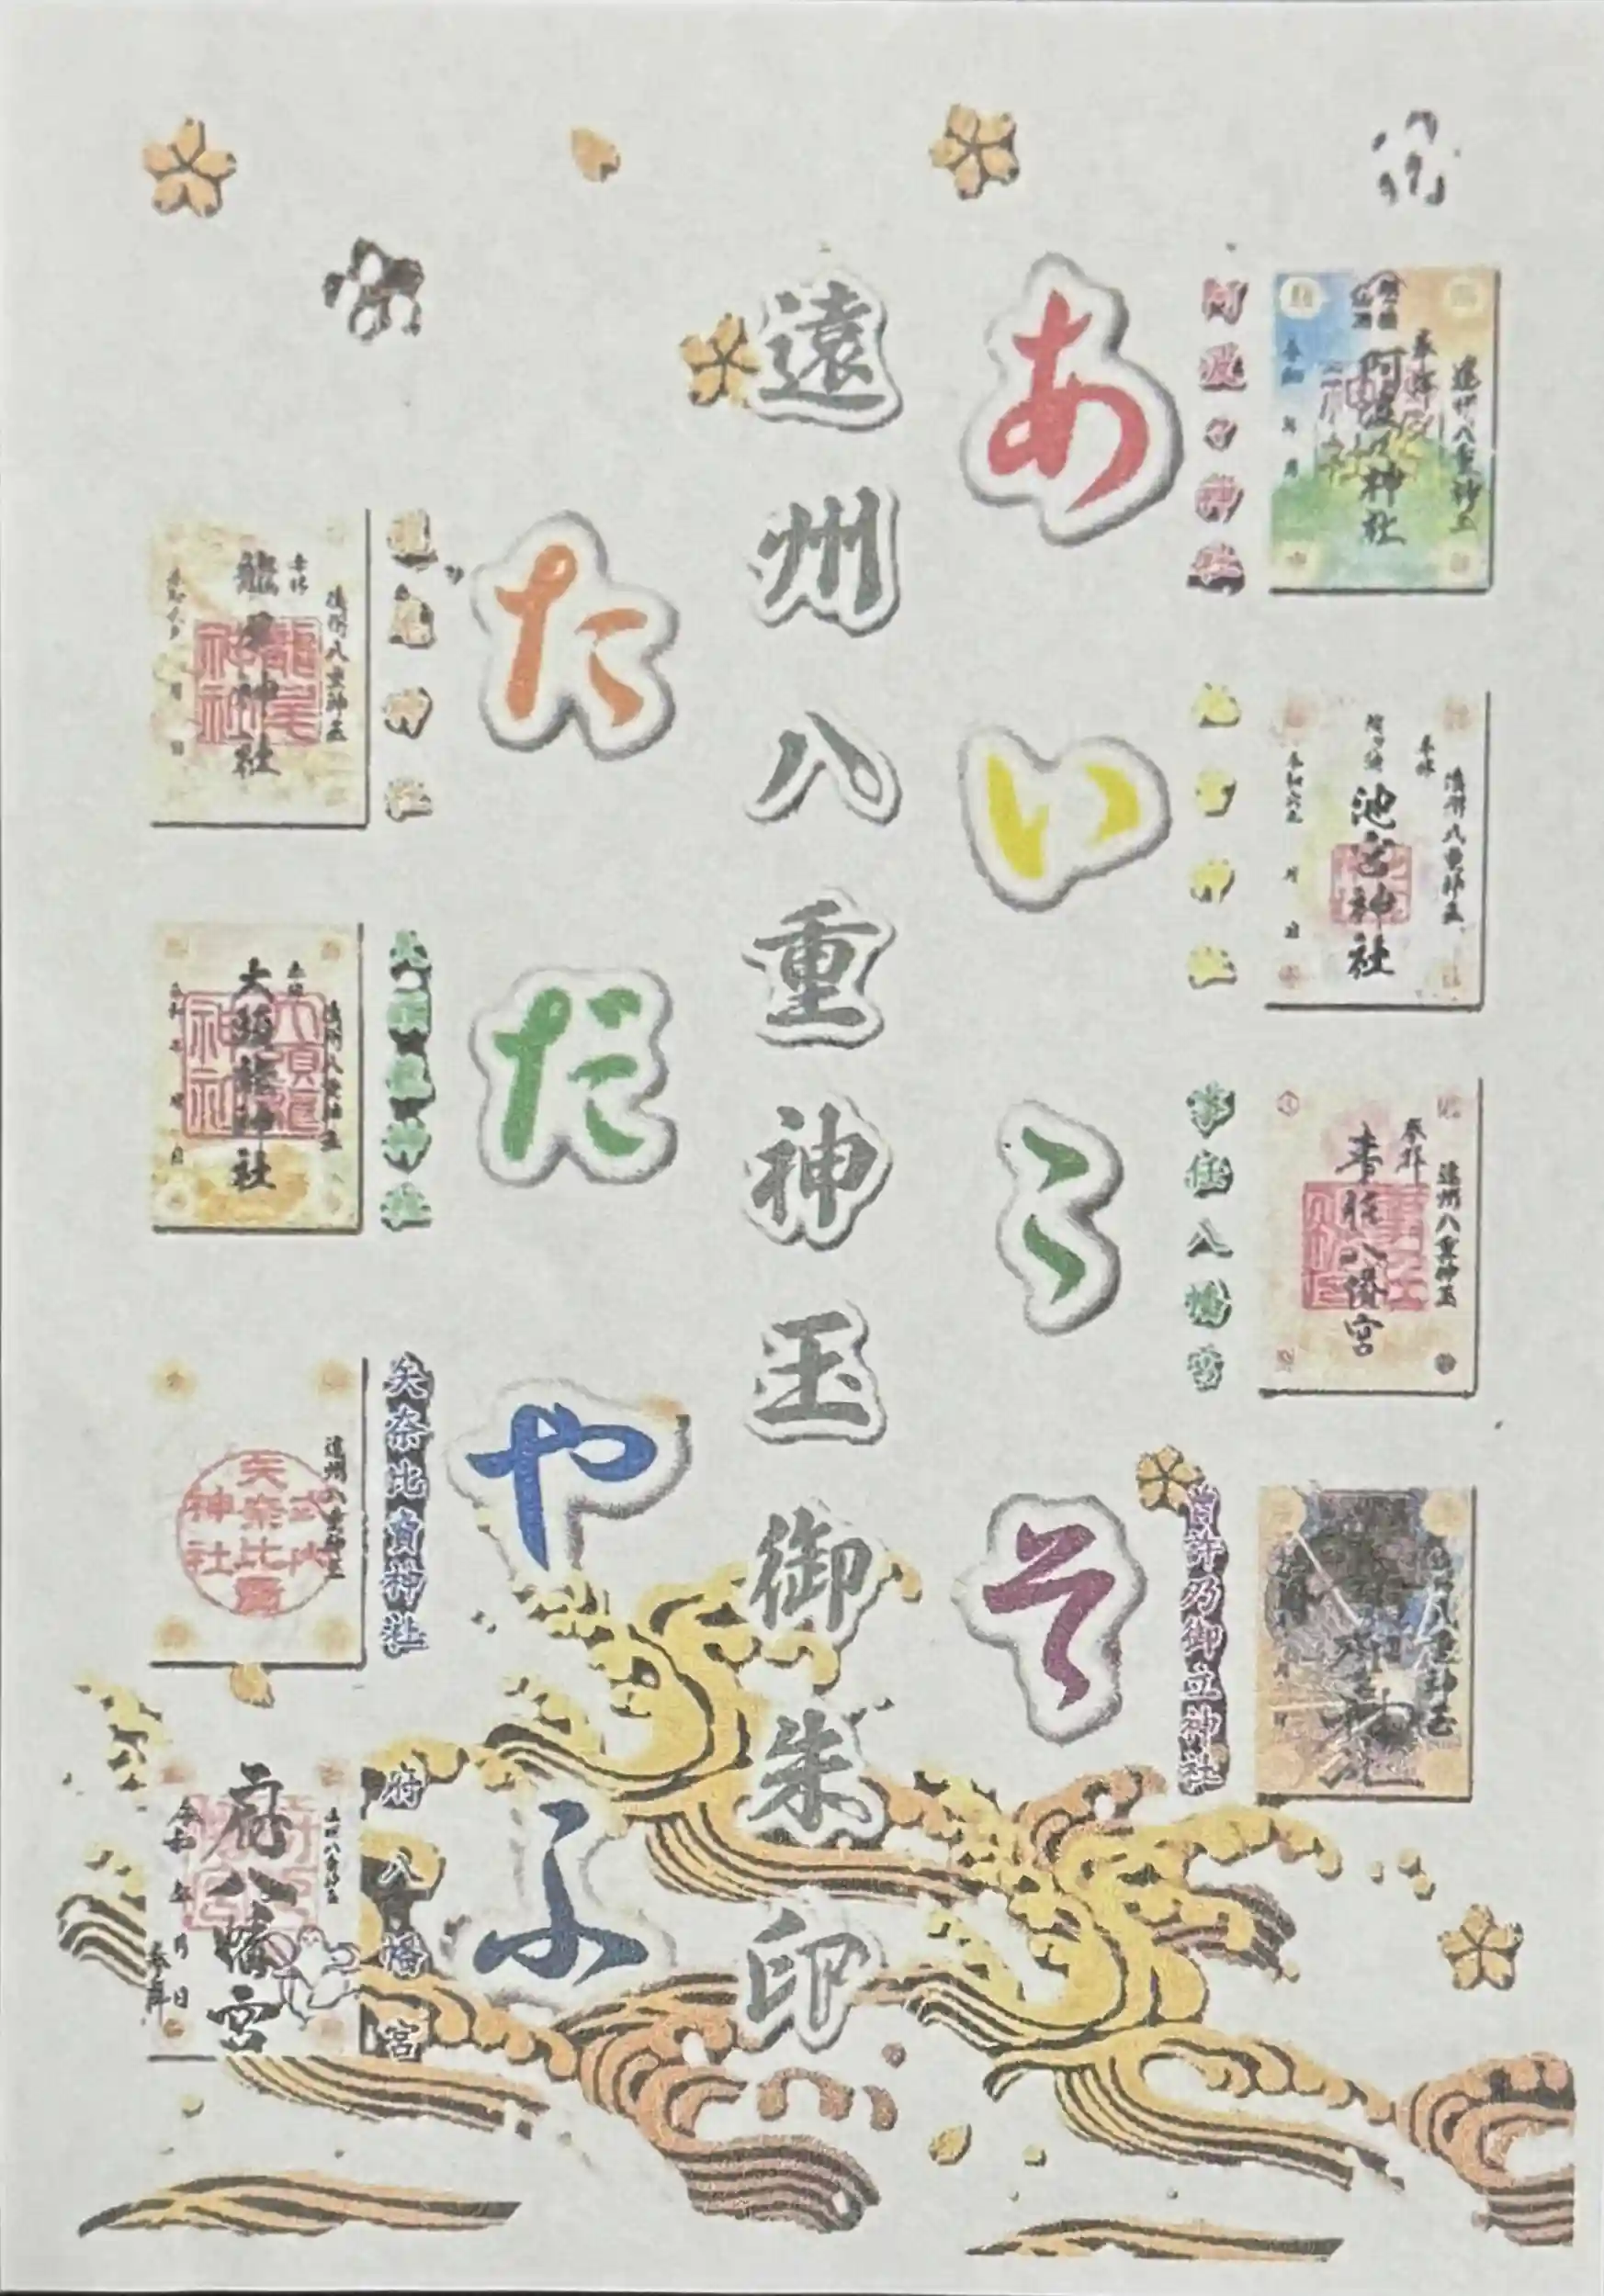 阿波々神社
あ
遠州八重神玉
奉拝
阿波々神社
池宮神社
い
遠州八重神玉
奉拝
池宮神社
事任八幡宮
う
遠州八重神玉
奉拝
事任八幡宮
曽許乃御立神社
そ
遠州八重神玉御朱印
た
龍尾神社
遠州八重神玉
奉拝
龍尾神社
月
日
だ
大頭龍神社
遠州八重神玉
大頭龍神社
や
矢奈比賣神社
遠州八重神玉
式内
矢奈比賣
神社
ふ
府八幡宮
府八幡宮
令和 年 月 日